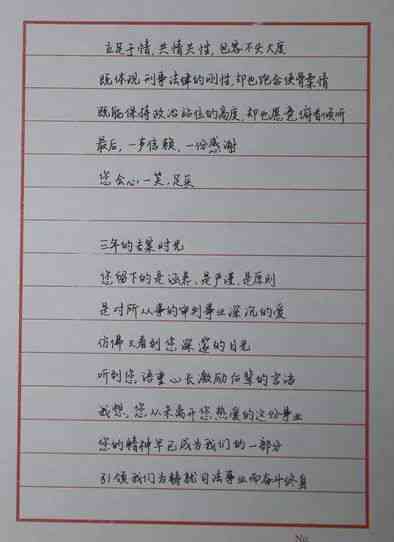 立足于情,共情共性,包容不失大度
既体现刑事法律的刚性,却也饱含侠骨柔情
既能保持政治站位的高度,却也愿意俯首倾听
最后,一声信赖,一份感谢
您会心一笑,足矣
三年的专案时光
您留下的是涵养,是严谨,是原则
是对所从事的审判事业深沉的爱
仿佛又看到您深邃的目光
听到您语重心长激励后辈的言语
我想,您从未离开您热爱的这份事业
您的精神早已成为我们的一部分
引领我们为铸就司法事业而奋斗终身
No.